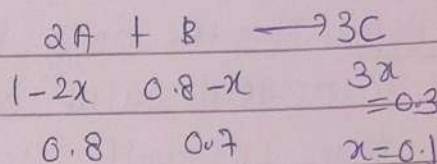 2A + B ⟶ 3C
1-2x 0.8-x 3x
=0.3
0.8 0.7 x=0.1